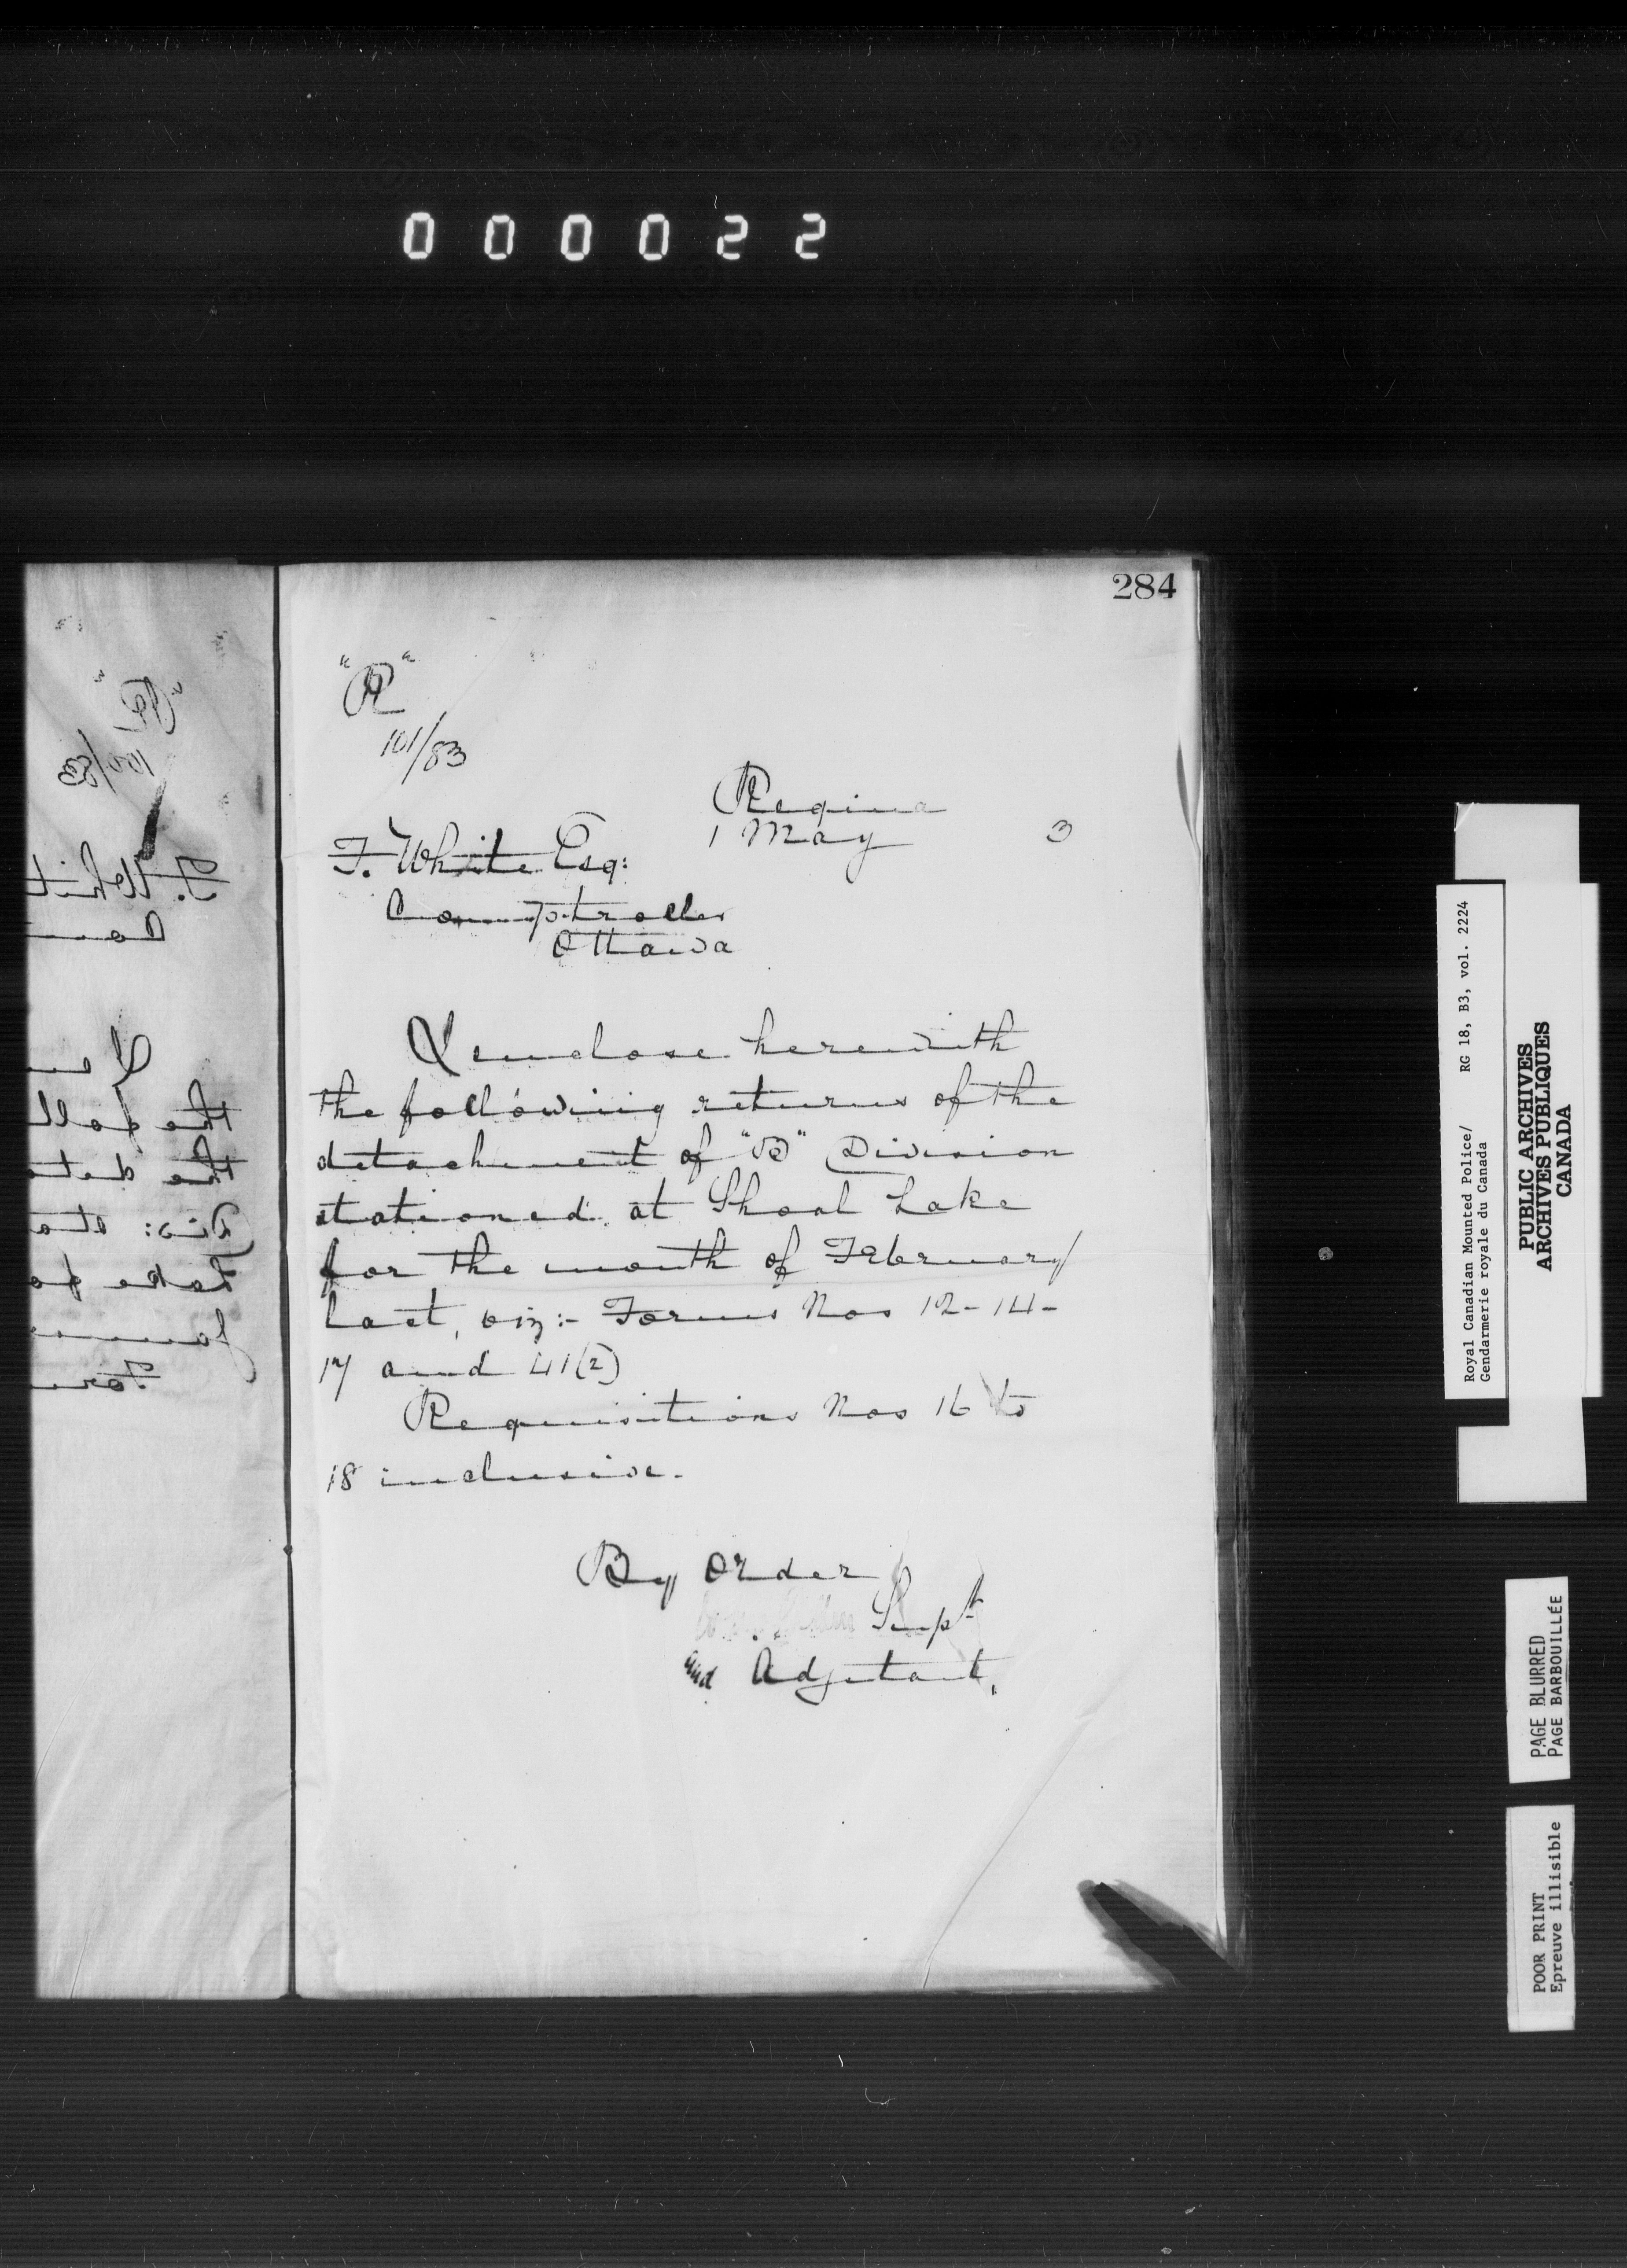 000022
284
"R"
101/83
Regina
1 May 3
F. White Esq:
Comptroller
Ottawa
I enclose herewith
the following returns of the
detachment of "B" Division
stationed at Shoal Lake
for the month of February
last, viz:- Forms Nos 12-14-
17 and 41(2)
Requisitions Nos 16 to
18 inclusive.
By Order
Supt
and Adjutant.
"R"
100/83
F. Whit
Com
I en
the foll
the deta
Div: sta
Lake fo
Form
Royal Canadian Mounted Police/ RG 18, B3, vol. 2224
Gendarmerie royale du Canada
PUBLIC ARCHIVES
ARCHIVES PUBLIQUES
CANADA
PAGE BLURRED
PAGE BARBOUILLÉE
POOR PRINT
Epreuve illisible